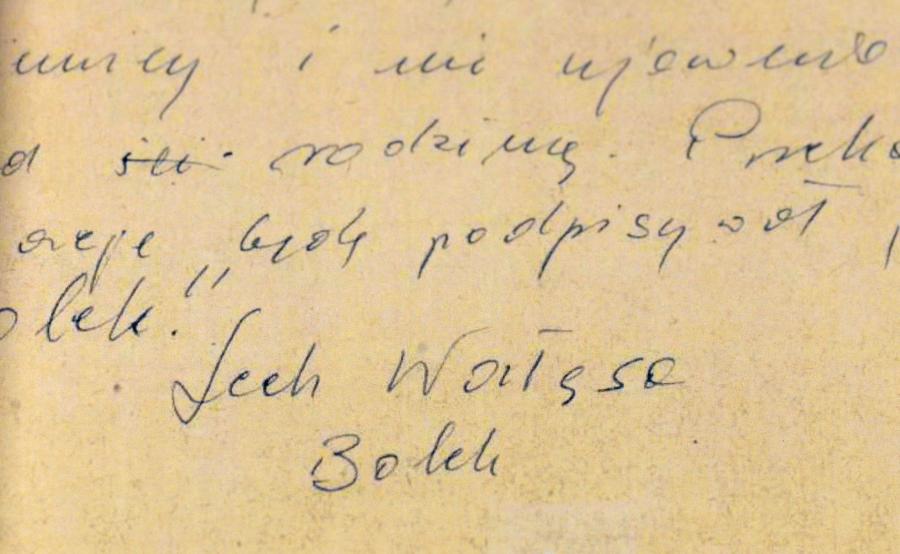 i nie ujawnić
rodziną. Przeka
będę podpisywał
olek."
Lech Wałęsa
Bolek